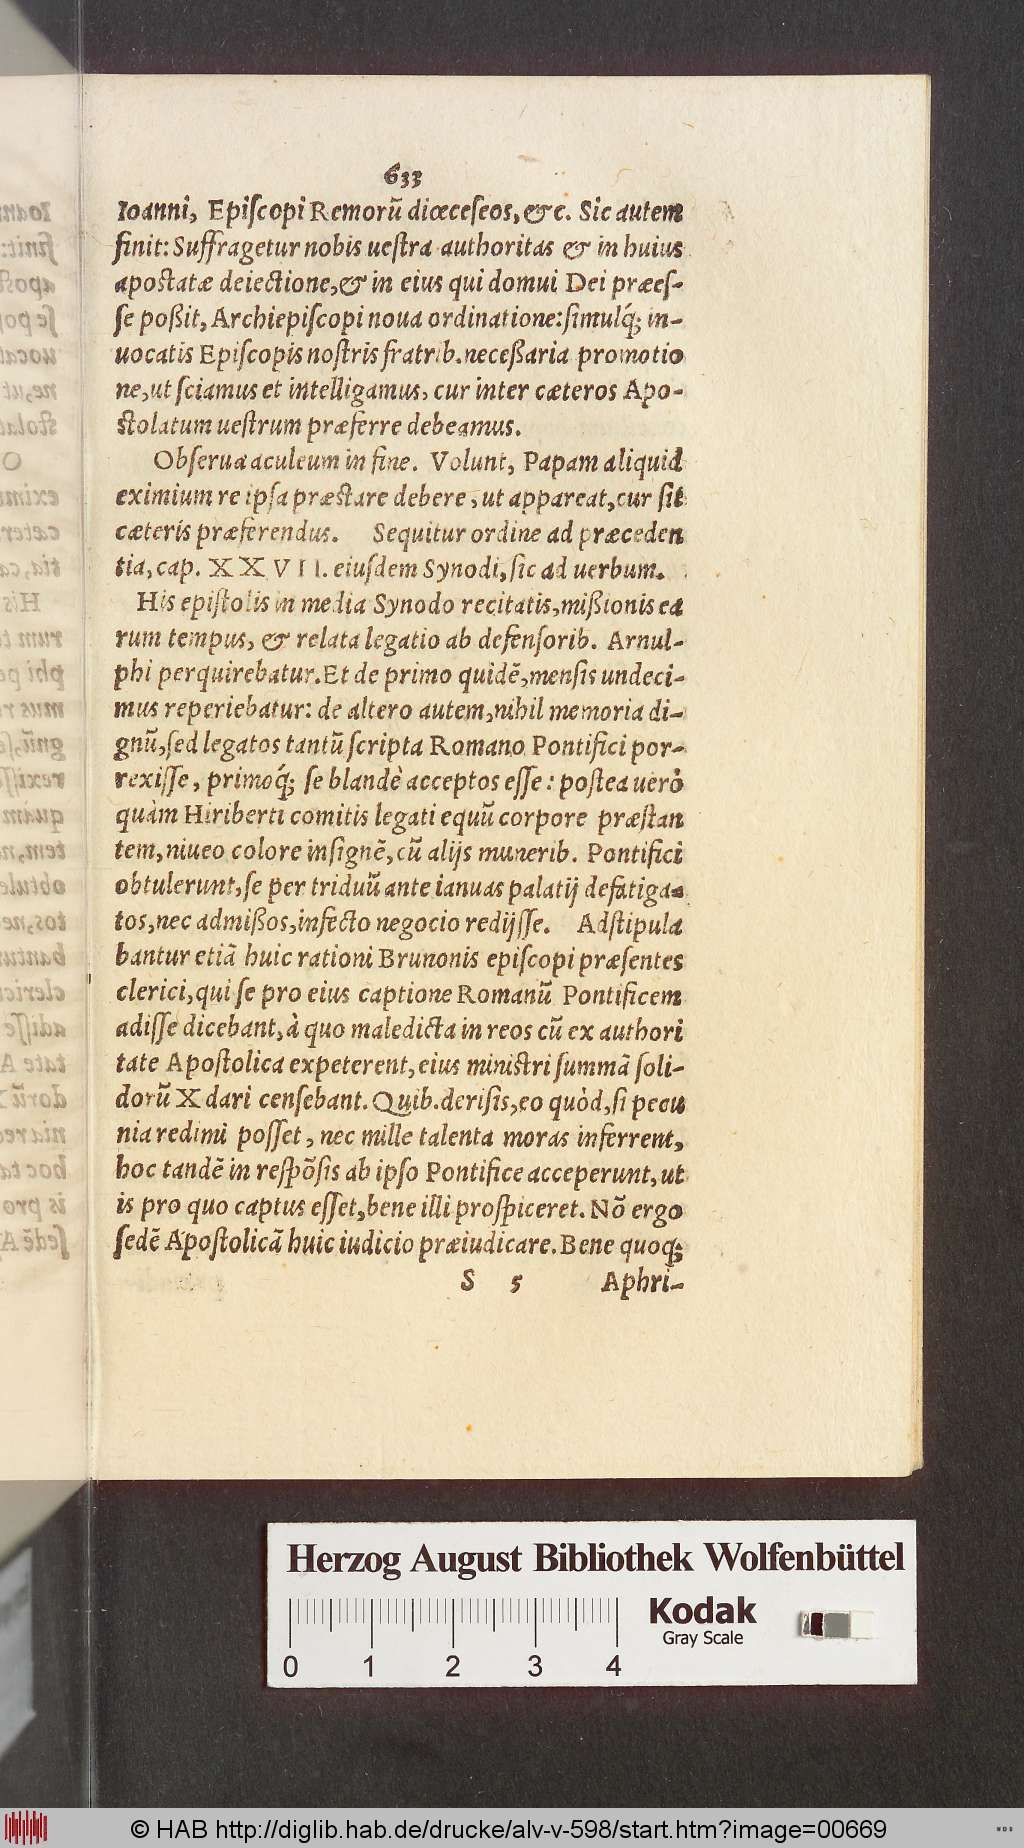 633
Ioanni, Epiſcopi Remorũ diœceſeos, &c. Sic autem
finit: Suffragetur nobis ueſtra authoritas & in huius
apoſtatæ deiectione, & in eius qui domui Dei præeſ-
ſe poßit, Archiepiſcopi noua ordinatione: ſimulq́; in-
uocatis Epiſcopis noſtris fratrib. neceßaria promotio
ne, ut ſciamus et intelligamus, cur inter cæteros Apo-
ſtolatum ueſtrum præferre debeamus.
Obſerua aculeum in fine. Volunt, Papam aliquid
eximium re ipſa præſtare debere, ut appareat, cur ſit
cæteris præferendus. Sequitur ordine ad præceden
tia, cap. XXVII. eiuſdem Synodi, ſic ad uerbum.
His epiſtolis in media Synodo recitatis, mißionis ea
rum tempus, & relata legatio ab defenſorib. Arnul-
phi perquirebatur. Et de primo quidẽ, menſis undeci-
mus reperiebatur: de altero autem, nihil memoria di-
gnũ, ſed legatos tantũ ſcripta Romano Pontifici por-
rexiſſe, primoq́; ſe blandè acceptos eſſe: poſtea uerò
quàm Hiriberti comitis legati equũ corpore præſtan
tem, niueo colore inſignẽ, cũ alijs munerib. Pontifici
obtulerunt, ſe per triduũ ante ianuas palatij defatiga-
tos, nec admißos, infecto negocio redijſſe. Adſtipula
bantur etiã huic rationi Brunonis epiſcopi præſentes
clerici, qui ſe pro eius captione Romanũ Pontificem
adiſſe dicebant, à quo maledicta in reos cũ ex authori
tate Apoſtolica expeterent, eius miniſtri ſummã ſoli-
dorũ X dari cenſebant. Quib. deriſis, eo quòd, ſi pecu
nia redimi poſſet, nec mille talenta moras inferrent,
hoc tandẽ in reſpõſis ab ipſo Pontifice acceperunt, ut
is pro quo captus eſſet, bene illi proſpiceret. Nõ ergo
ſedẽ Apoſtolicã huic iudicio præiudicare. Bene quoq;
S 5 Aphri-
Herzog August Bibliothek Wolfenbüttel
Kodak
Gray Scale
0 1 2 3 4
© HAB http://diglib.hab.de/drucke/alv-v-598/start.htm?image=00669